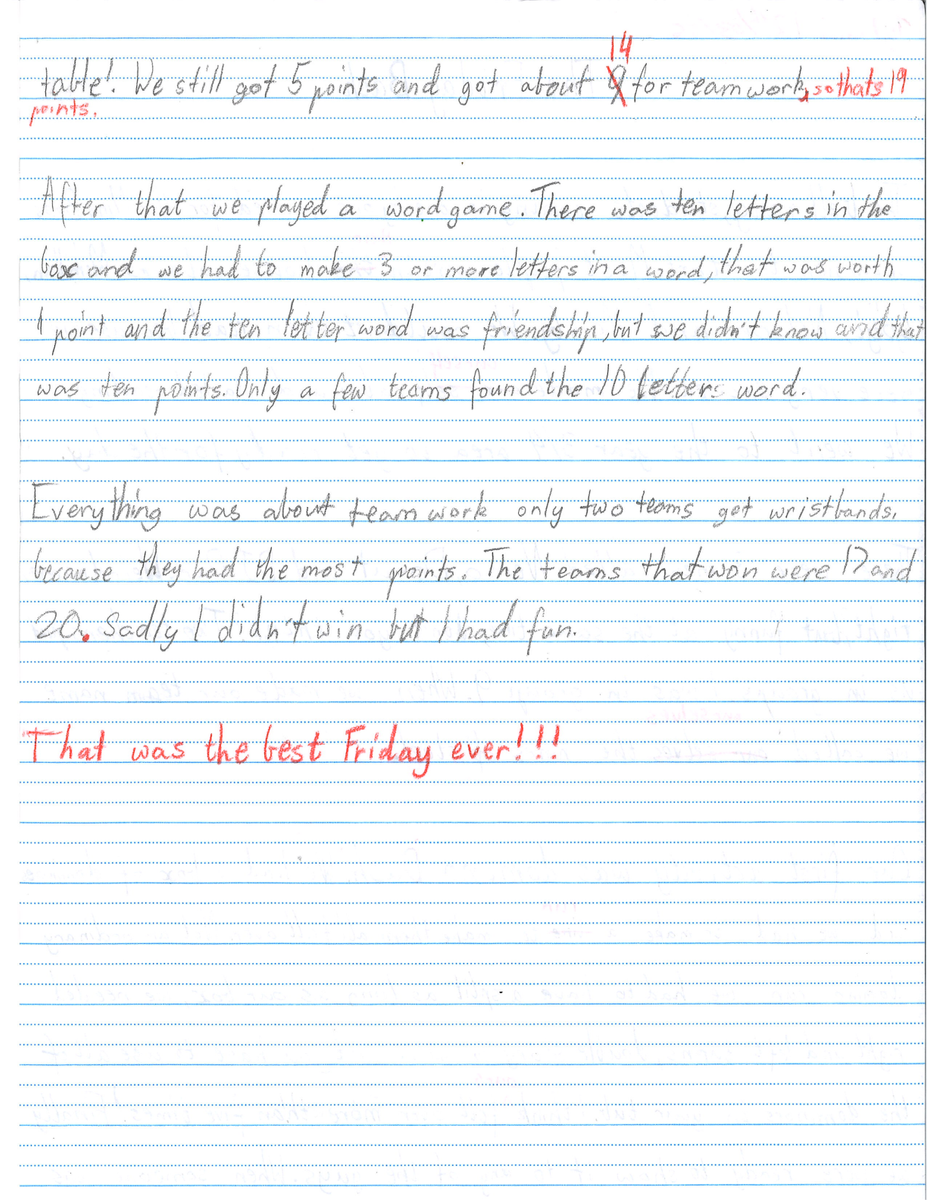 14
table! We still got 5 points and got about 9 for team work, so thats 19
points.
After that we played a word game. There was ten letters in the
box and we had to make 3 or more letters in a word, that was worth
1 point and the ten letter word was friendship, but we didn't know and that
was ten points. Only a few teams found the 10 letters word.
Everything was about team work only two teams got wristbands,
because they had the most points. The teams that won were 17 and
20. Sadly I didn't win but I had fun.
That was the best Friday ever!!!